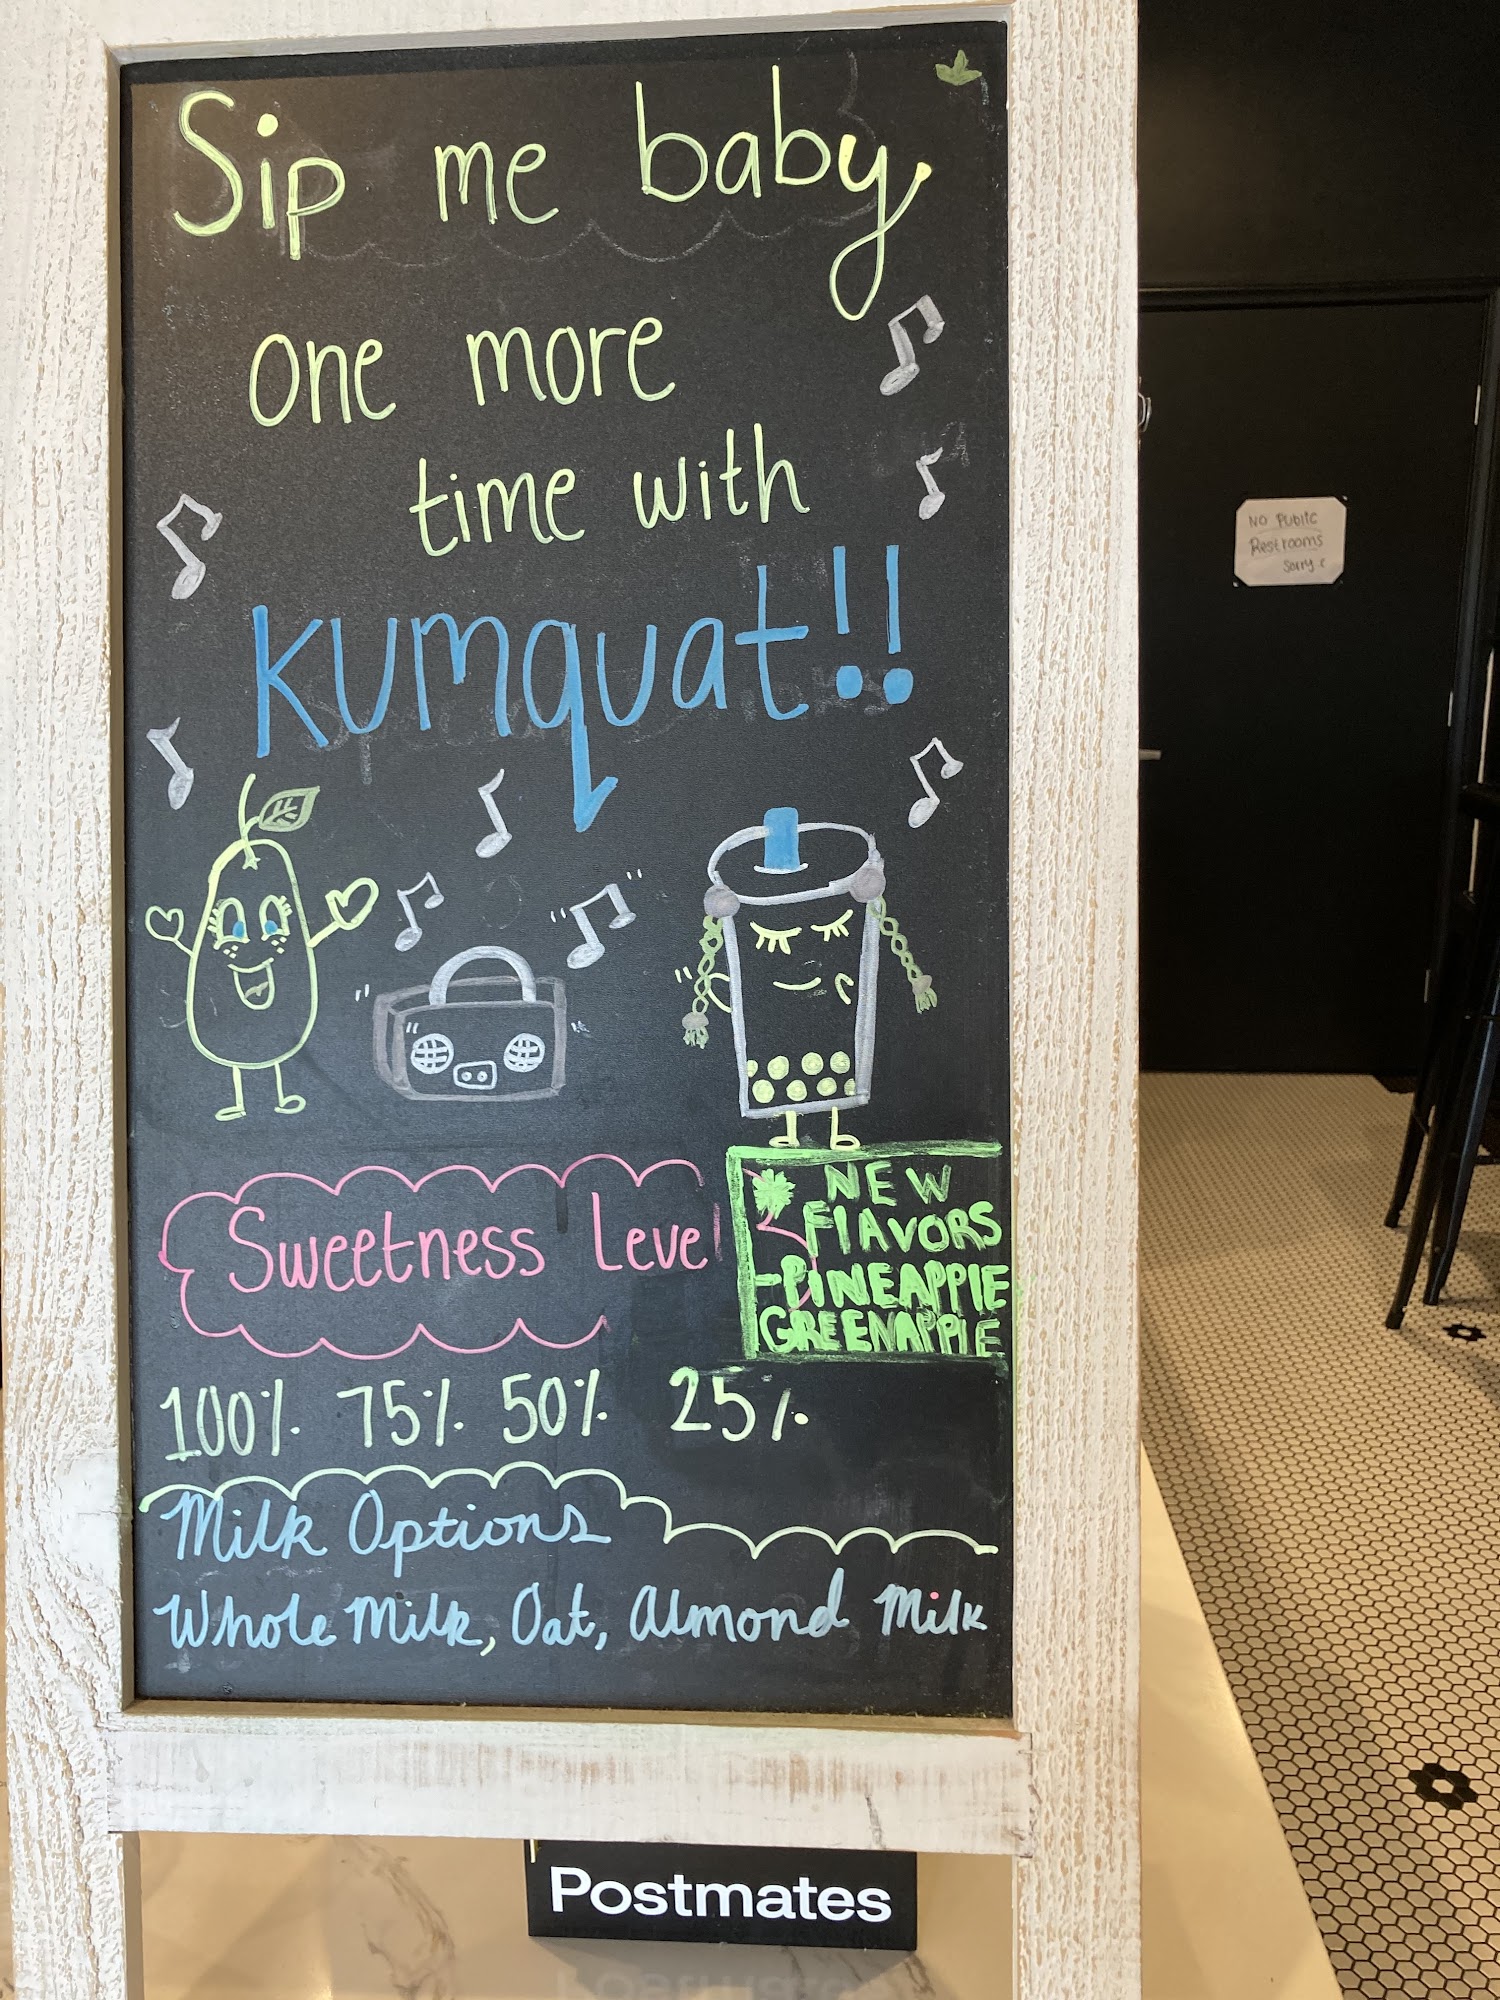 Sip me baby,
one more
time with
kumquat!!
Sweetness Level
NEW
FlAVORS
-PINEAPPlE
GREENAPPlE
100% 75% 50% 25%
Milk Options
Whole Milk, Oat, Almond Milk
Postmates
NO Public
Restrooms
Sorry :(